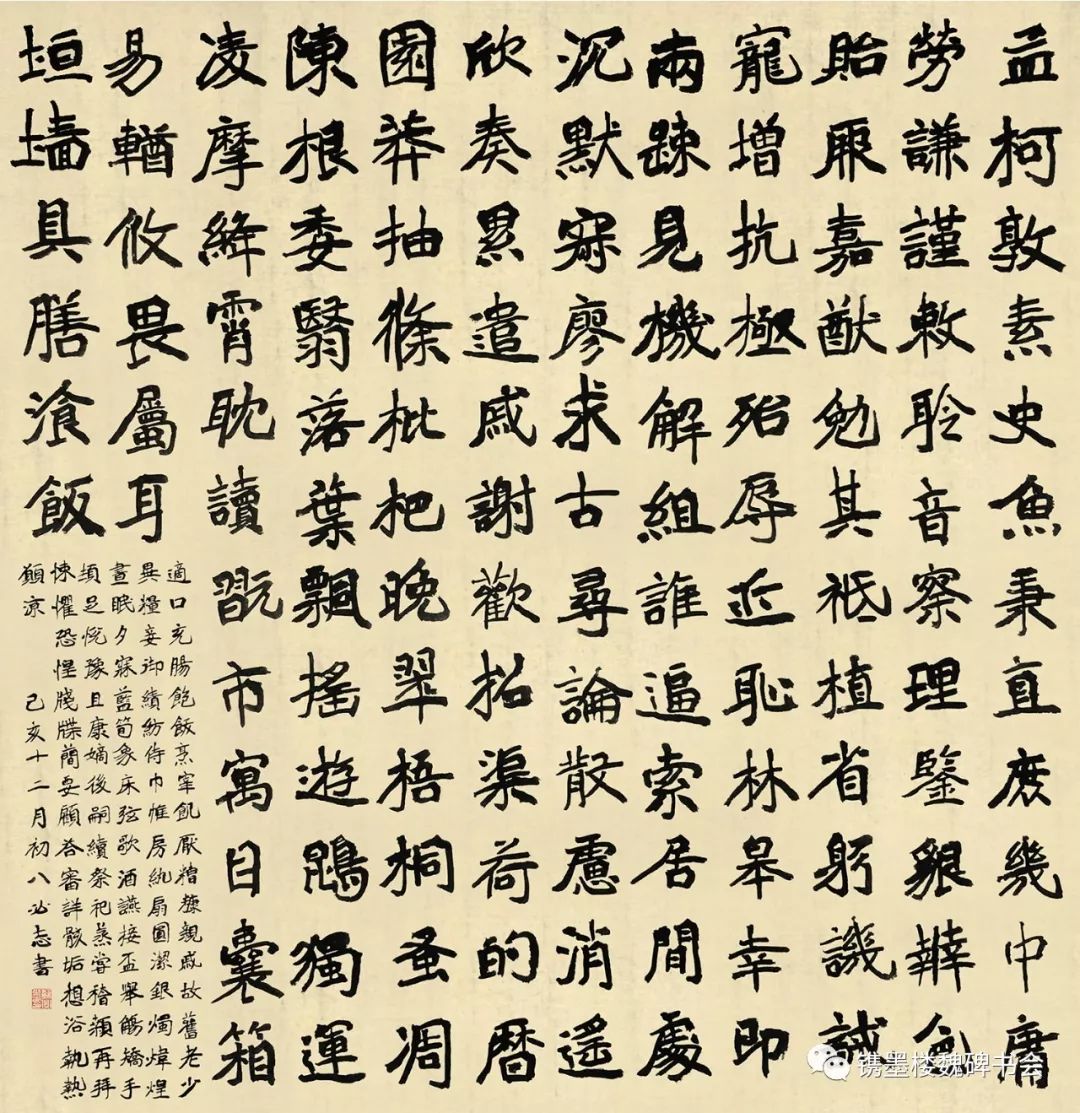 孟柯敦素史魚秉直庶幾中庸
勞謙謹敕聆音察理鑒貌辨色
貽厥嘉猷勉其祗植省躬譏誡
寵增抗極殆辱近恥林皋幸即
兩疎見機解組誰逼索居閒處
沉默寂寥求古尋論散慮消遙
欣奏累遣戚謝歡招渠荷的曆
園莽抽條枇杷晚翠梧桐蚤凋
陳根委翳落葉飄搖遊鵾獨運
凌摩絳霄耽讀翫市寓目囊箱
易輶攸畏屬耳
垣墻具膳湌飯
適口充腸飽飫烹宰飢厭糟糠親戚故舊老少
異糧妾御績紡侍巾帷房紈扇圓潔銀燭煒煌
晝眠夕寐藍筍象床弦歌酒讌接盃舉觴矯手
頓足悅豫且康嫡後嗣續祭祀蒸嘗稽顙再拜
悚懼恐惶牋牒簡要顧答審詳骸垢想浴執熱
願涼 己亥十二月初八必志書
镌墨楼魏碑书会